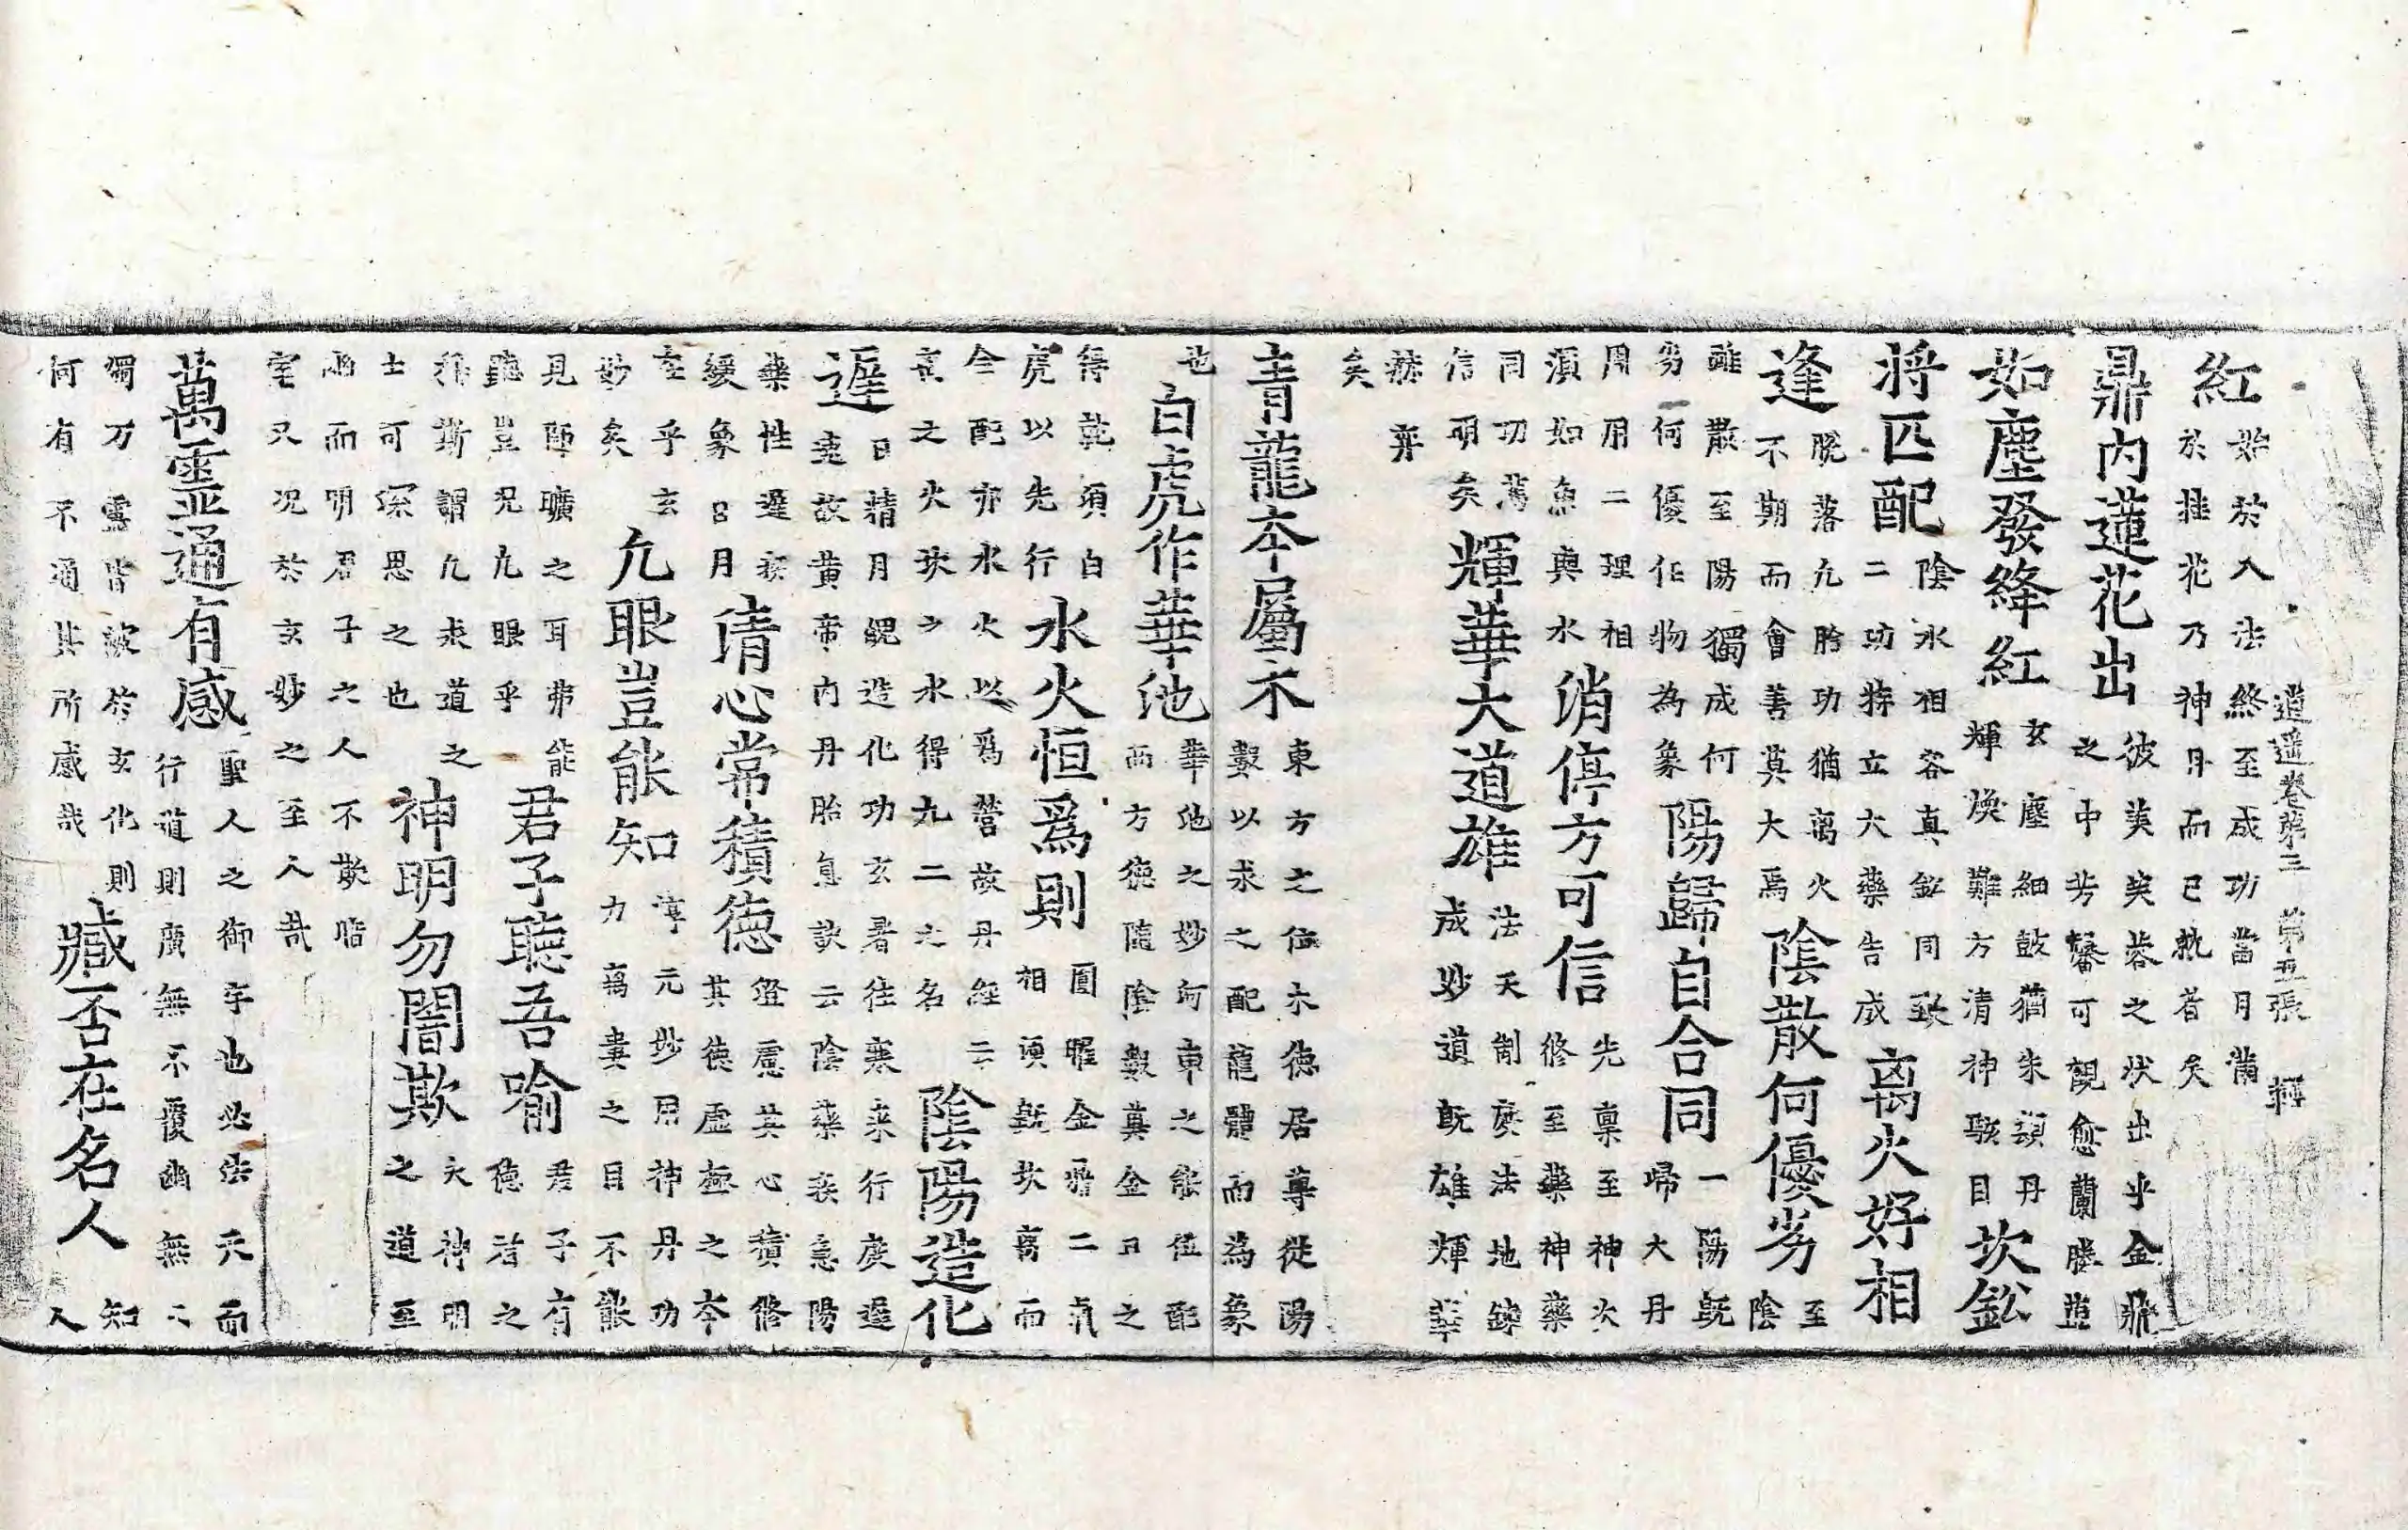 紅 始於入法終至成功當月滿
於挂花乃神丹而已孰者矣
鼎内蓮花出 彼芙芙蓉之状出乎金鼎
之中芳馨可觀愈蘭勝蓝
如塵發絳紅 玄塵細鼓猶朱頭丹
輝煥難方清神駭目 坎鈆
將匹配 陰水相容真鈆同致
二功特立大藥告成 离火好相
逢 脫落九胎功猶离火
不期而會善莫大焉 陰散何優劣 至
陰
雖散至陽獨成何
劣何優化物為象 陽歸自合同 一陽既
歸大丹
用用二理相
須如魚與水 消停方可信 先禀至神神火
修至藥神藥
同功焉
信明矣 輝華大道雄 法天制廣法地鍊
成妙道既雄輝華
赫弈
矣
青龍夲屬木 東方之位木德居尊從陽
數以求之配龍體而為象
也
白虎作華池 華池之妙何車之能位配
西方德隨陰數莫金曰之
得乾須白
虎以先行 水火恒爲則 圓曜金爵二氣
相須旣坎离而
全配亦水火以爲營故丹經云
言之火坎之水得九二之名 陰陽造化
遲 日精月魄造化功玄暑往寒来行度遲
速故黄帝内丹胎息訣云陰藥衰急陽
藥性遲衰
緩象日月 清心常積德 澄慮其心積修
其德虚極之夲
玄乎玄
妙矣 九眼豈能知 淳元妙用神丹功
力离婁之目不能
見師曠之耳弗能
聽豈況凡眼乎 君子聽吾喻 君子有
德者之
稱斯謂凡求道之
士可深思之也 神明勿闇欺 天神明
之道至
幽而明君子之人不欺暗
室又况於玄妙之至人哉
萬靈通有感 聖人之御宇也必法天而
行道則廣無不覆幽無不
燭万靈皆波於玄化則知
何有不通其所感哉 臧否在名人 人
逍遥卷第三 第五張 輕